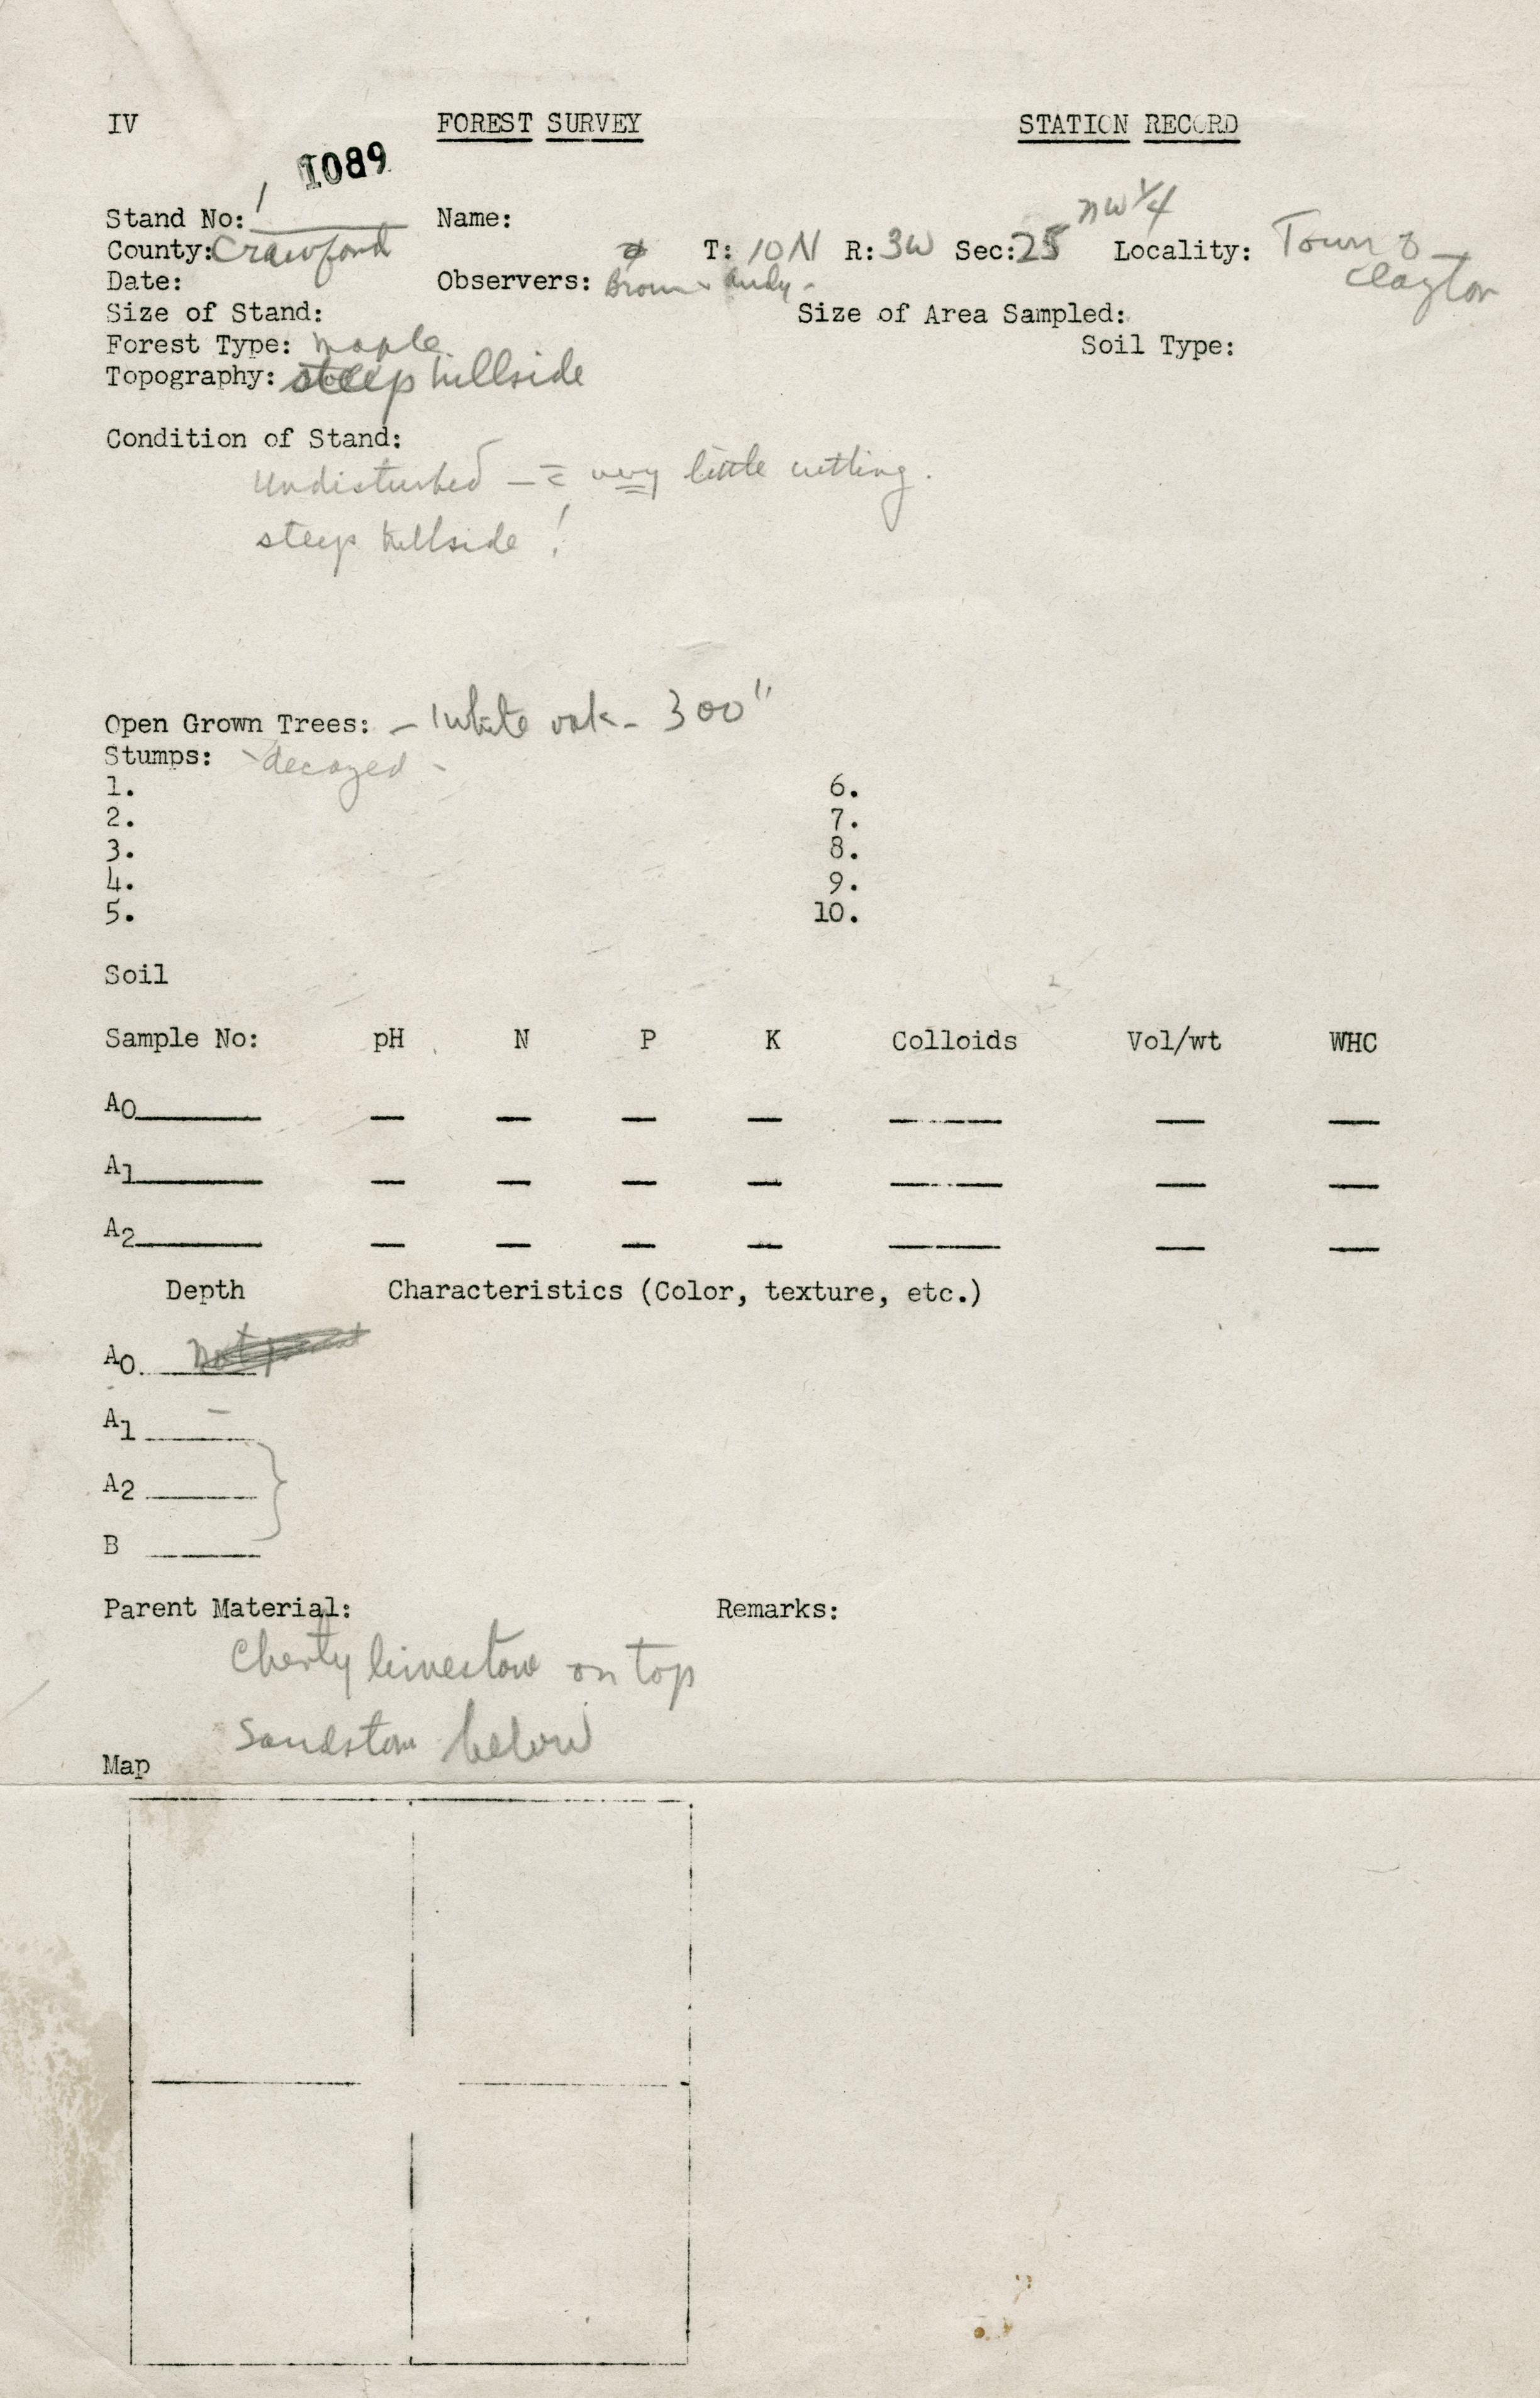 IV FOREST SURVEY STATION RECORD
1089
Stand No: 1 Name: NW 1/4
County: Crawford T: 10N R: 3W Sec: 25 Locality: Town of
Clayton
Date: Observers: Brown & Andy -
Size of Stand: Size of Area Sampled:
Forest Type: maple Soil Type:
Topography: steep hillside
Condition of Stand:
Undisturbed — very little cutting.
steep hillside !
Open Grown Trees: - 1 white oak - 300"
Stumps: - decayed -
1. 6.
2. 7.
3. 8.
4. 9.
5. 10.
Soil
Sample No: pH N P K Colloids Vol/wt WHC
A0
A1
A2
Depth Characteristics (Color, texture, etc.)
A0.
A1 -
A2
B
Parent Material: Remarks:
Cherty limestone on top
Sandstone below
Map